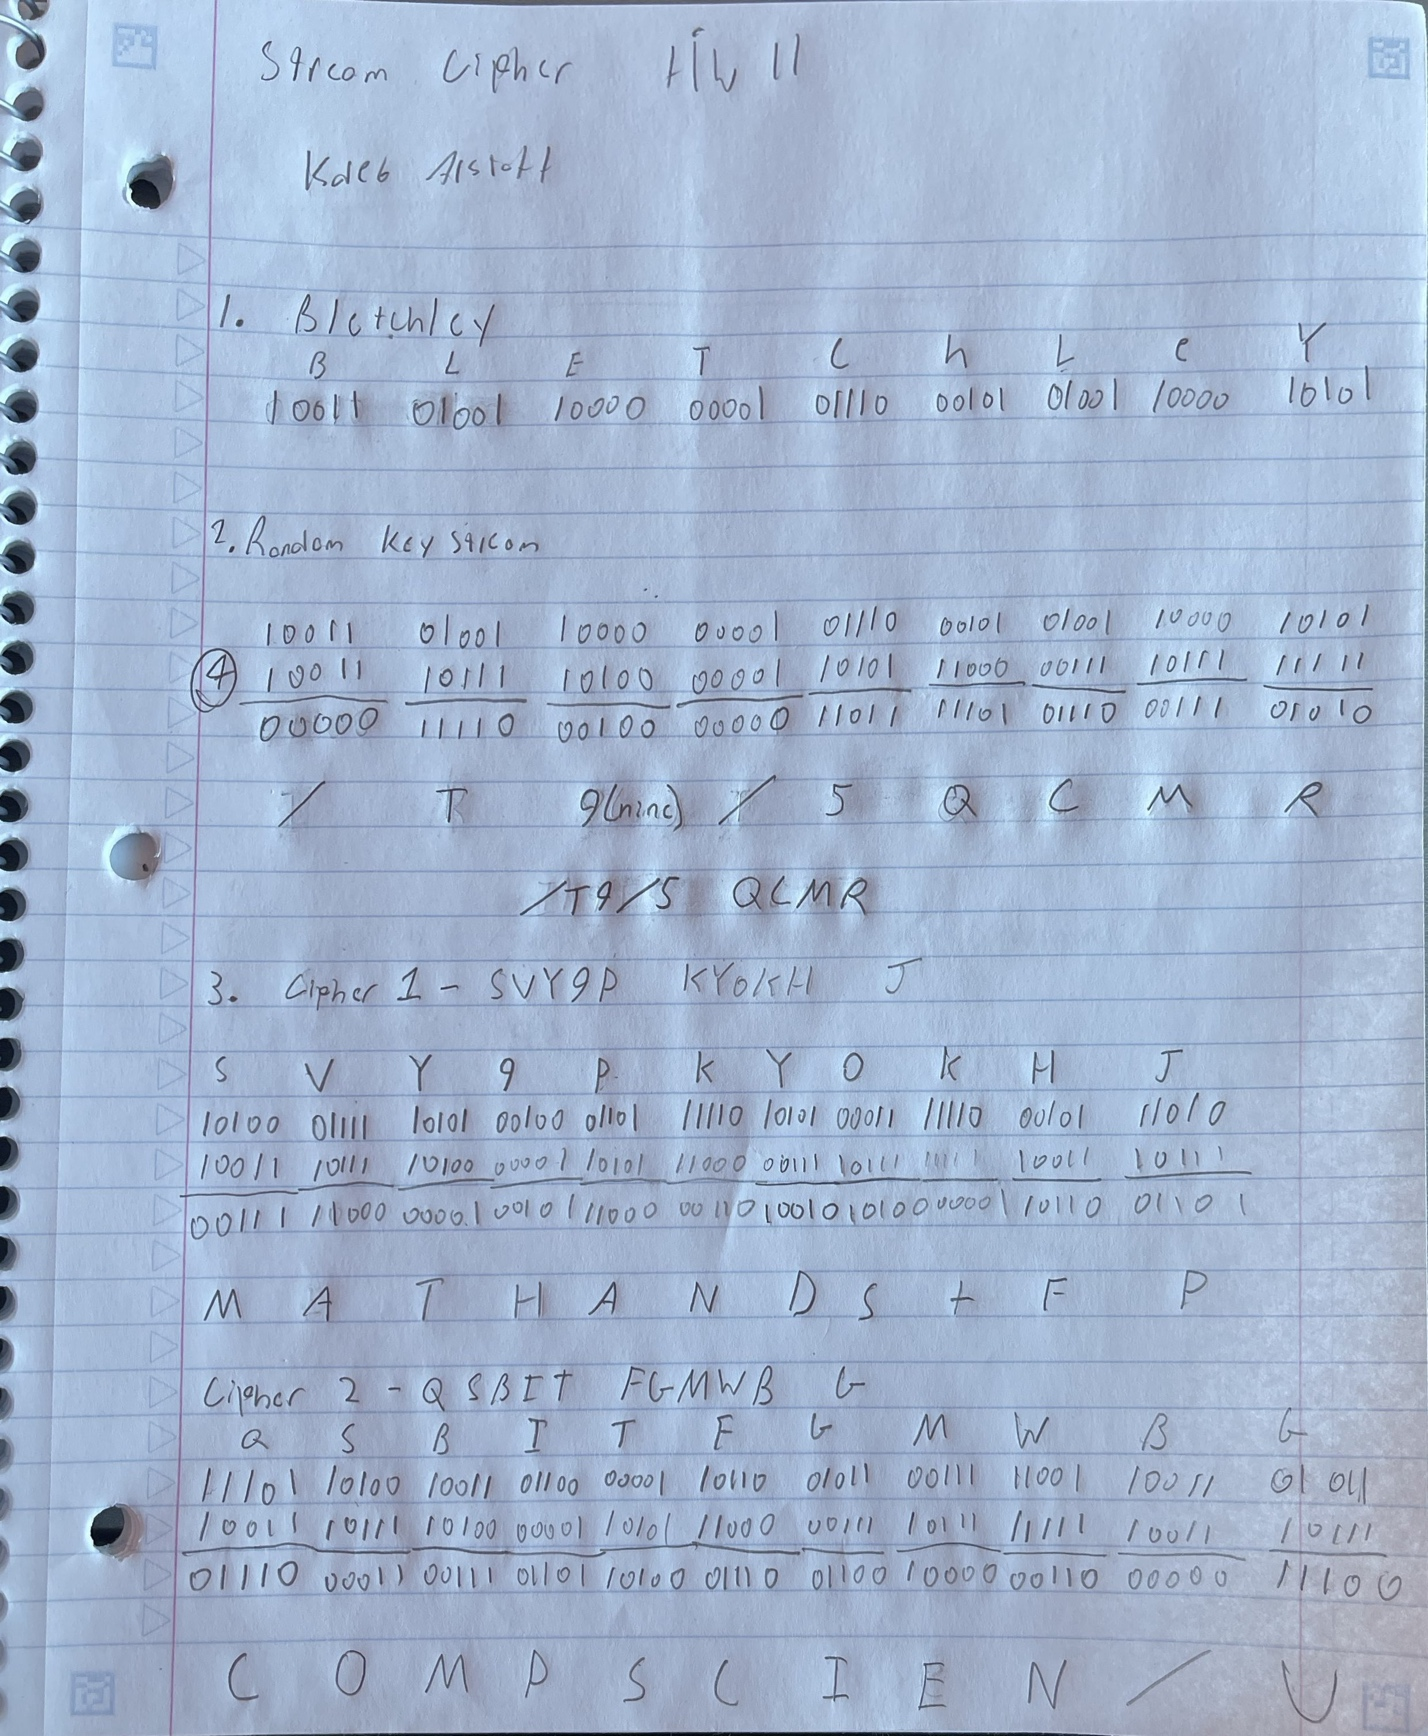 Stream Cipher HW 11
Kaleb Alstott
1. Bletchley
B L E T C h L e Y
10011 01001 10000 00001 01110 00101 01001 10000 10101
2. Random Key Stream
10011 01001 10000 00001 01110 00101 01001 10000 10101
4 10011 10111 10100 00001 10101 11000 00111 10111 11111
00000 11110 00100 00000 11011 11101 01110 00111 01010
/ T 9(nine) / 5 Q C M R
/T9/5 QCMR
3. Cipher 1 - SVY9P KYOKH J
S V Y 9 P K Y O K H J
10100 01111 10101 00100 01101 11110 10101 00011 11110 00101 11010
10011 10111 10100 00001 10101 11000 00111 10111 11111 10011 10111
00111 11000 00001 00101 11000 00110 10010 10100 00001 10110 01101
M A T H A N D S t F P
Cipher 2 - QSBIT FGMWB G
Q S B I T F G M W B G
11101 10100 10011 01100 00001 10110 01011 00111 11001 10011 01011
10011 10111 10100 00001 10101 11000 00111 10111 11111 10011 10111
01110 00011 00111 01101 10100 01110 01100 10000 00110 00000 11100
C O M P S C I E N / U